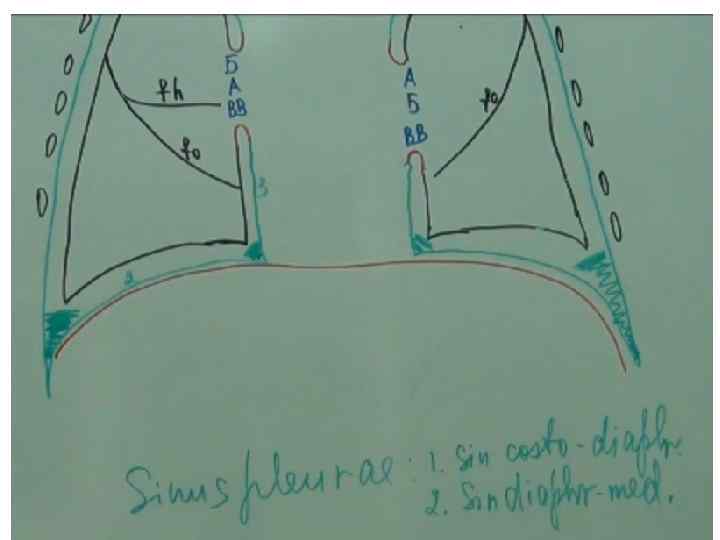 Б
А
ВВ
А
Б
ВВ
fh
fo
fo
3
2
Sinus pleurae: 1. Sin costo-diaphr.
2. Sin diaphr-med.